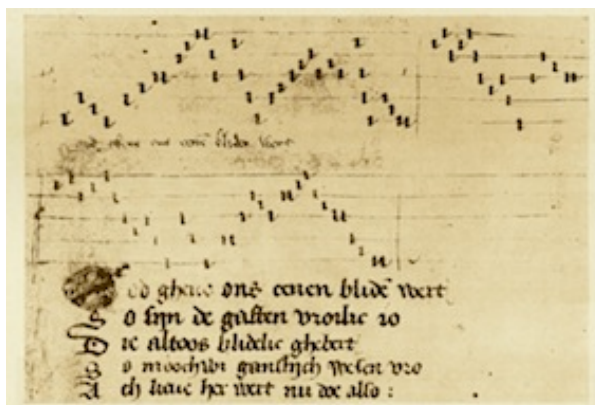 God gheve ons eenen blidē wert
So sijn de gasten vrolic io
Die altoos blidelic ghebert
So moochwi ganslijch wesen vro
Ach lieve her wert nu doe also :